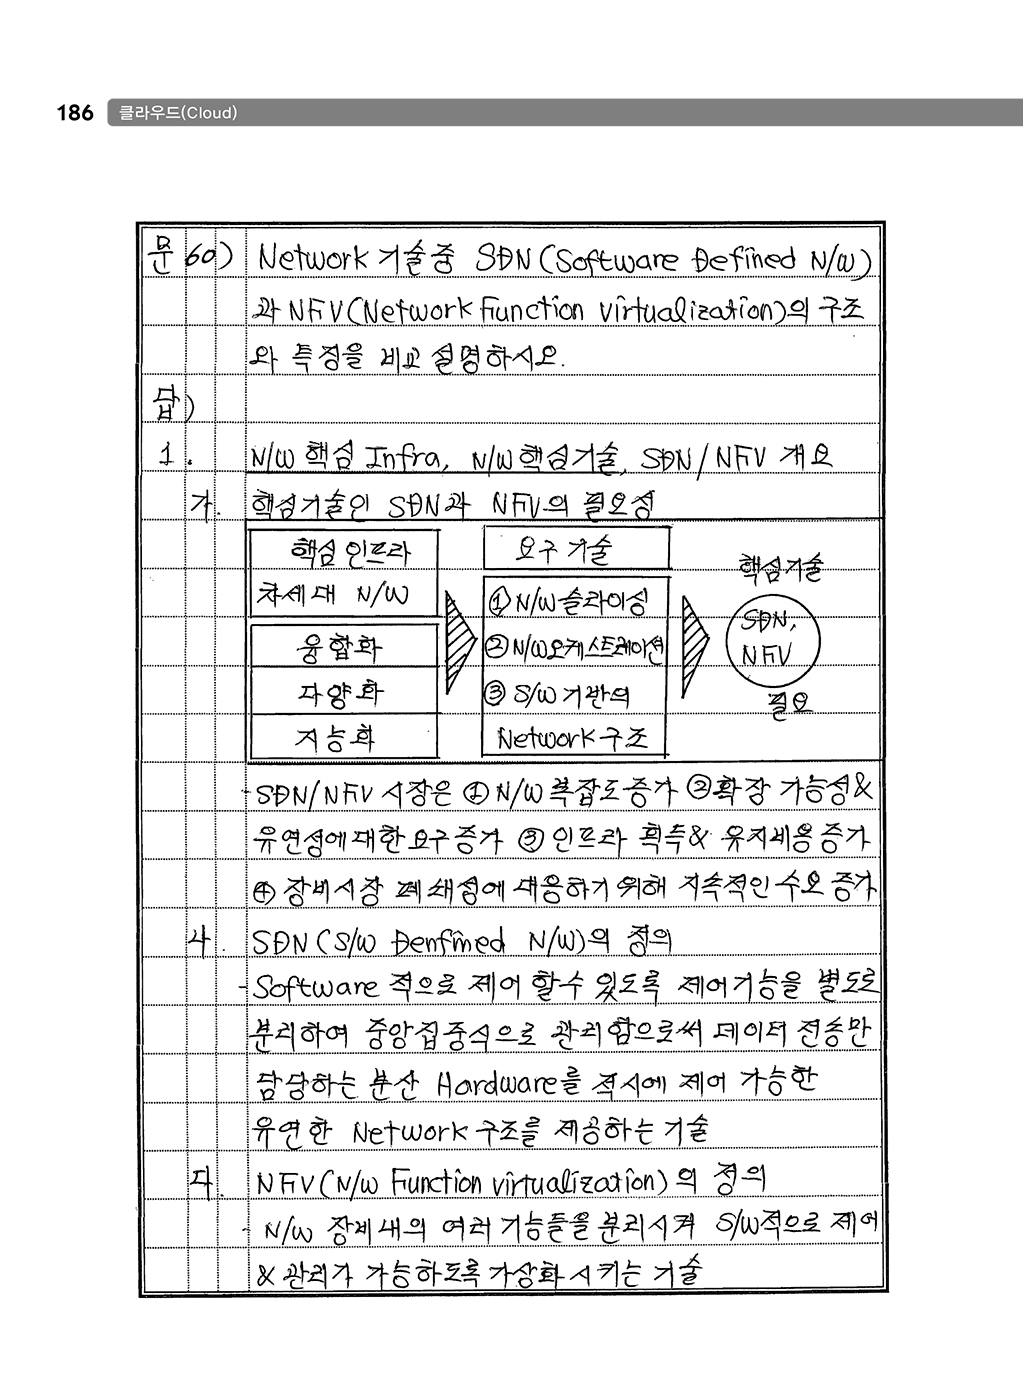 186 클라우드(Cloud)
문 60) Network 기술중 SDN(Software Defined N/W)
과 NFV(Network Function virtualization)의 구조
와 특징을 비교 설명하시오.
답)
1. N/W 핵심 Infra, N/W 핵심기술, SDN/NFV 개요
가. 핵심기술인 SDN과 NFV의 필요성
핵심 인프라
차세대 N/W
융합화
다양화
지능화
요구 기술
① N/W 슬라이싱
② N/W오케스트레이션
③ S/W 기반의
Network 구조
핵심기술
SDN,
NFV
필요
- SDN/NFV 시장은 ① N/W 복잡도 증가 ② 확장 가능성&
유연성에 대한 요구 증가 ③ 인프라 획득& 유지비용 증가
④ 장비시장 폐쇄성에 대응하기 위해 지속적인 수요 증가
나. SDN(S/W Denfined N/W)의 정의
- Software 적으로 제어 할수 있도록 제어기능을 별도로
분리하여 중앙집중식으로 관리함으로써 데이터 전송만
담당하는 분산 Hardware를 적시에 제어 가능한
유연한 Network 구조를 제공하는 기술
다. NFV(N/W Function virtualization)의 정의
- N/W 장비내의 여러 기능들을 분리시켜 S/W적으로 제어
& 관리가 가능하도록 가상화 시키는 기술